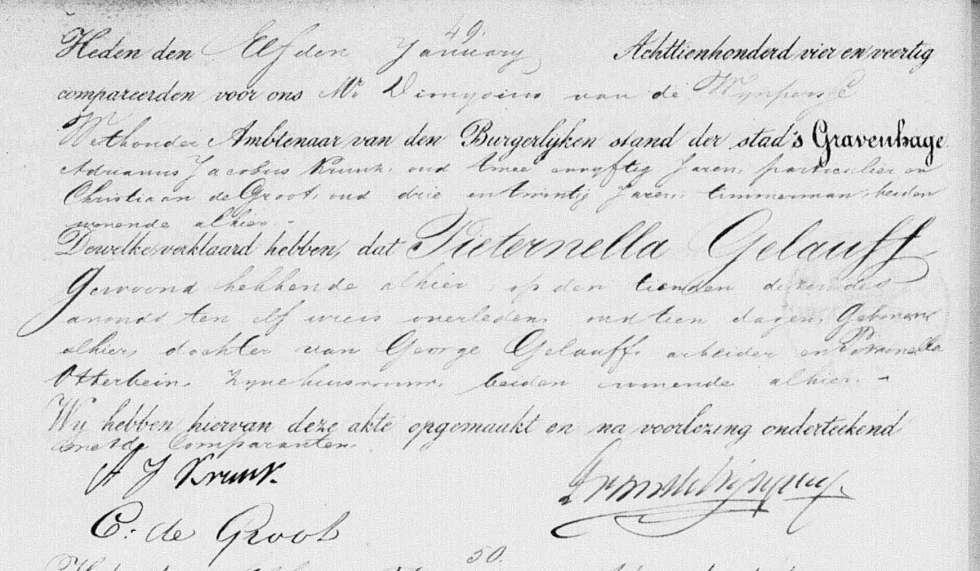 49.
Heden den Elfden January Achttienhonderd vier en veertig
compareerden voor ons Mr Dionysius van de Wynpersse
Wethouder Ambtenaar van den Burgerlijken stand der stad 's Gravenhage
Adrianus Jacobus Krunk, oud twee envyftig Jaren, particulier en
Christiaan de Groot, oud drie entwintig Jaren, timmerman, beiden
wonende alhier.-
Dewelke verklaard hebben, dat Pieternella Gelauff
Gewoond hebbende alhier, op den tienden dezer des
avonds ten elf ure is overleden, oud tien dagen, Geboren
alhier, dochter van George Gelauff, arbeider en Pieternella
Otterbein, zyne huisvrouw, beiden wonende alhier. -
Wij hebben hiervan deze akte opgemaakt en na voorlezing onderteekend
met de Comparanten.
A J Krunk.
C: de Groot
50.